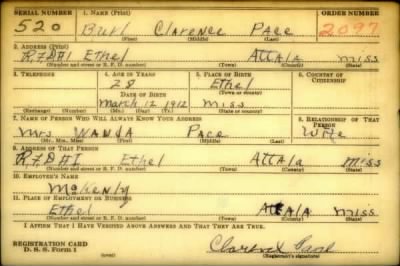 SERIAL NUMBER 1. NAME (Print) ORDER NUMBER
520 Burl Clarence Pace 2097
(First) (Middle) (Last)
2. ADDRESS (Print)
R.F.D #1 Ethel Attala Miss
(Number and street or R. F. D. number) (Town) (County) (State)
3. TELEPHONE 4. AGE IN YEARS 5. PLACE OF BIRTH 6. COUNTRY OF CITIZENSHIP
28 Ethel
DATE OF BIRTH (Town or county)
March 12 1912 Miss
(Exchange) (Number) (Mo.) (Day) (Yr.) (State or country)
7. NAME OF PERSON WHO WILL ALWAYS KNOW YOUR ADDRESS 8. RELATIONSHIP OF THAT PERSON
Mrs Wanda Pace Wife
(Mr., Mrs., Miss) (First) (Middle) (Last)
9. ADDRESS OF THAT PERSON
R.F.D #1 Ethel Attala Miss
(Number and street or R. F. D. number) (Town) (County) (State)
10. EMPLOYER'S NAME
11. PLACE OF EMPLOYMENT OR BUSINESS
Ethel Attala Miss
(Number and street or R. F. D. number) (Town) (County) (State)
I AFFIRM THAT I HAVE VERIFIED ABOVE ANSWERS AND THAT THEY ARE TRUE.
REGISTRATION CARD
D. S. S. Form 1 Clarence Pace
(Registrant's signature)